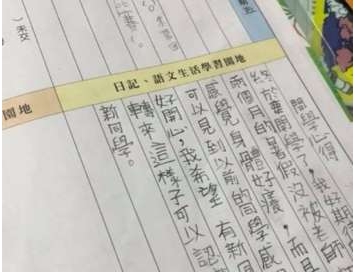 日記、語文生活學習園地
開學心得
終於要開學了，我好期待
兩個月的暑假沒被老師
感覺身體好癢，而且
可以見到以前的同學感
好開心，我希望有新同
轉來這樣子可以認
新同學。
園地